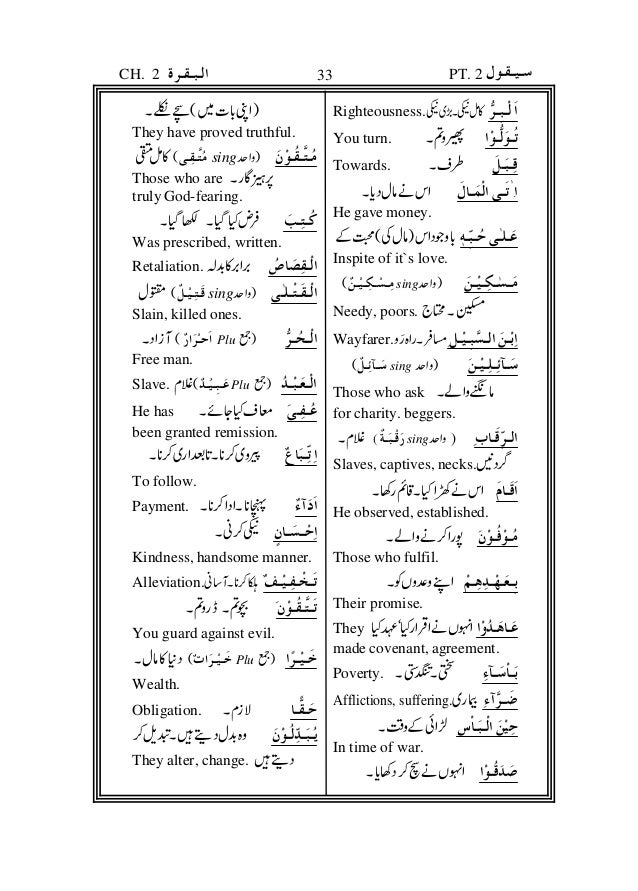 CH. 2 البقرة 33 PT. 2 سيقول
اَلْبِرُّ کامل نیکی۔ بڑی نیکی Righteousness.
تُوَلُّوْا پھیرو تم۔ You turn.
قِبَلَ طرف۔ Towards.
اٰتَى الْمَالَ اس نے مال دیا۔
He gave money.
عَلٰى حُبِّهٖ باوجود اس (مال) کی محبت کے
Inspite of it`s love.
مَسٰكِيْنَ (واحد sing مِسْكِيْنٌ)
مسکین۔ محتاج Needy, poors.
اِبْنَ السَّبِيْلِ مسافر۔ راہ رو Wayfarer.
سَآئِلِيْنَ (واحد sing سَآئِلٌ)
مانگنے والے۔ Those who ask
for charity. beggers.
الرِّقَابِ (واحد sing رَقَبَةٌ) غلام۔
گردنیں Slaves, captives, necks.
اَقَامَ اس نے کھڑا کیا۔ قائم رکھا۔
He observed, established.
مُوْفُوْنَ پورا کرنے والے۔
Those who fulfil.
بِعَهْدِهِمْ اپنے وعدوں کو۔
Their promise.
عَاهَدُوْا انہوں نے اقرار کیا، عہد کیا They
made covenant, agreement.
بَأْسَآءِ سختی۔ تنگدستی۔ Poverty.
ضَرَّآءِ بیماری Afflictions, suffering.
حِيْنَ الْبَأْسِ لڑائی کے وقت۔
In time of war.
صَدَقُوْا انہوں نے سچ کر دکھایا۔
(اپنی بات میں) سچے نکلے۔
They have proved truthful.
مُتَّقُوْنَ (واحد sing مُتَّقِى) کامل متقی
پرہیز گار۔ Those who are
truly God-fearing.
كُتِبَ فرض کیا گیا۔ لکھا گیا۔
Was prescribed, written.
الْقِصَاصُ برابر کا بدلہ Retaliation.
الْقَتْلٰى (واحد sing قَتِيْلٌ) مقتول
Slain, killed ones.
الْحُرُّ (جمع Plu اَحْرَارٌ) آزاد۔
Free man.
الْعَبْدُ (جمع Plu عَبِيْدٌ) غلام Slave.
عُفِيَ معاف کیا جائے۔ He has
been granted remission.
اِتِّبَاعٌ پیروی کرنا۔ تابعداری کرنا۔
To follow.
اَدَآءٌ پہنچانا۔ ادا کرنا۔ Payment.
اِحْسَانٍ نیکی کرنی۔
Kindness, handsome manner.
تَخْفِيْفٌ ہلکا کرنا۔ آسانی Alleviation.
تَتَّقُوْنَ بچو تم۔ ڈرو تم۔
You guard against evil.
خَيْرًا (جمع Plu خَيْرَاتٌ) دنیا کا مال۔
Wealth.
حَقًّا لازم۔ Obligation.
يُبَدِّلُوْنَ وہ بدل دیتے ہیں۔ تبدیل کر
دیتے ہیں They alter, change.